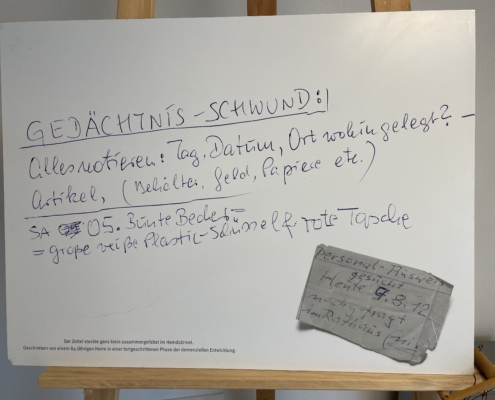 GEDÄCHTNIS-SCHWUND:!
Alles notieren: Tag, Datum, Ort wohin gelegt? –
Artikel, (Behälter, Geld, Papiere etc.)
SA 05. Bunte Becher =
= große weiße Plastic-Schüssel & rote Tasche
Personal-Ausweis
gesucht
Heute 7.8.12
nachgefragt
im Rathaus
Der Zettel steckte ganz klein zusammengefaltet im Hemdsärmel.
Geschrieben von einem 84-jährigen Mann in einer fortgeschrittenen Phase der demenziellen Entwicklung